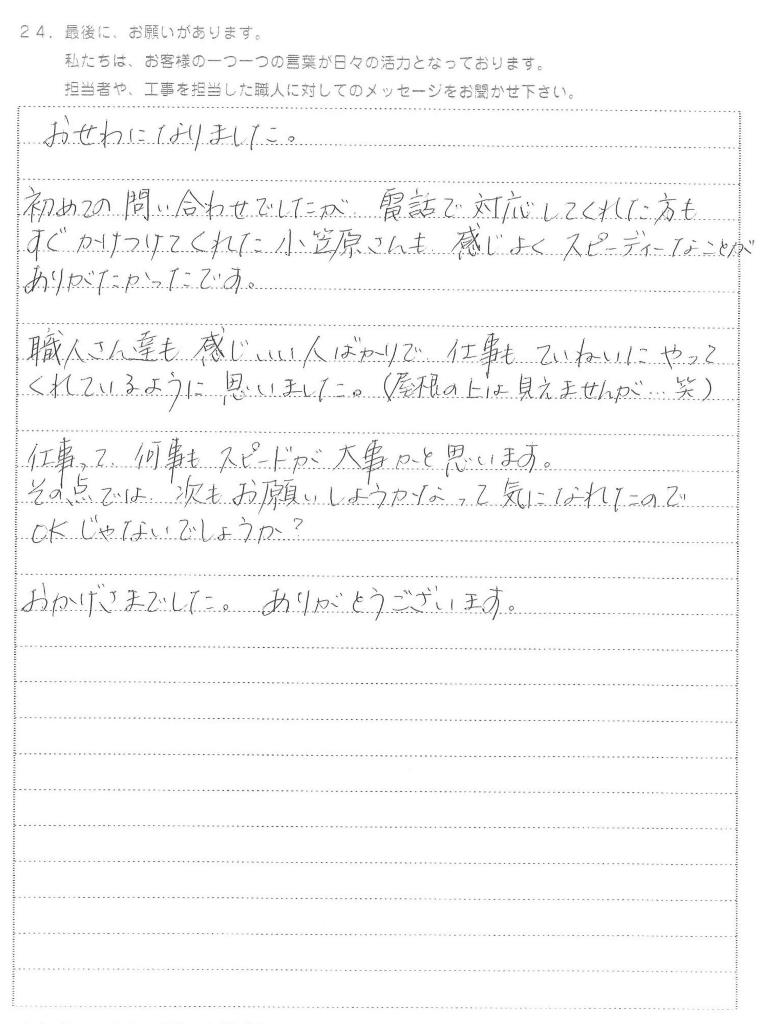 24. 最後に、お願いがあります。
私たちは、お客様の一つ一つの言葉が日々の活力となっております。
担当者や、工事を担当した職人に対してのメッセージをお聞かせ下さい。
おせわになりました。
初めての問い合わせでしたが 電話で対応してくれた方も
すぐかけつけてくれた小笠原さんも 感じよくスピーディーなことが
ありがたかったです。
職人さん達も 感じいい人ばかりで 仕事もていねいにやって
くれているように思いました。(屋根の上は見えませんが…笑)
仕事って、何事もスピードが大事かと思います。
その点では、次もお願いしようかなって気になれたので
OKじゃないでしょうか?
おかげさまでした。 ありがとうございます。